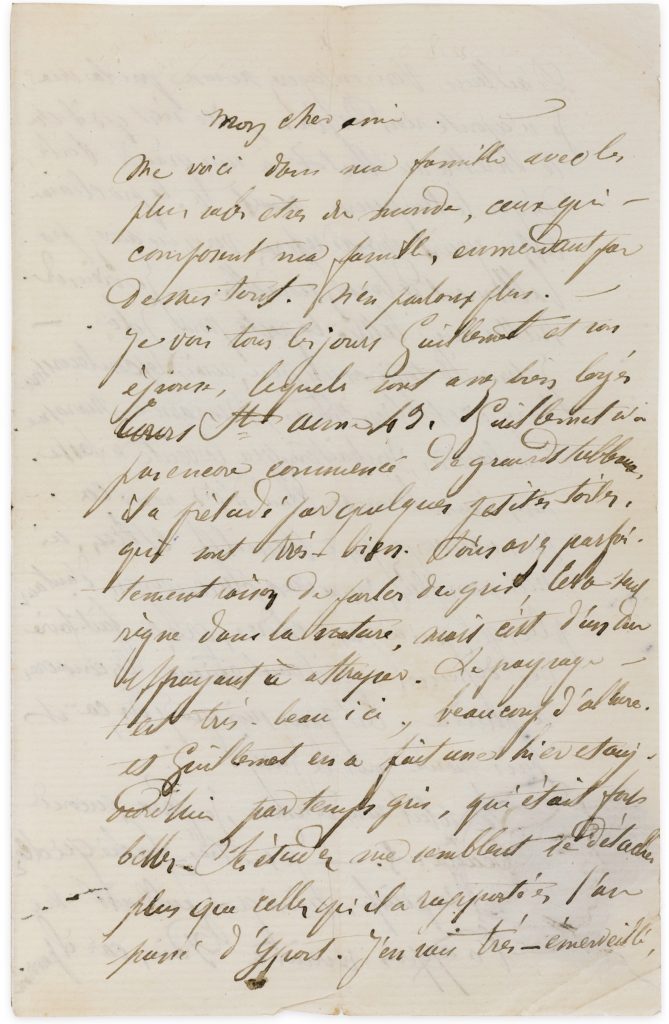 Mon cher ami
Me voici dans ma famille avec les
plus sales êtres du monde, ceux qui
composent ma famille, emmerdant par
dessus tout. N'en parlons plus. —
Je vois tous les jours Guillemet et son
épouse, lesquels sont assez bien logés
Cours Ste anne 43. Guillemet n'a
pas encore commencé de grands tableaux,
il a préludé par quelques petites toiles,
qui sont très-bien. Vous avez parfai-
tement raison de parler du gris, cela seul
règne dans la nature, mais c'est d'un dur
effrayant à attraper. Le paysage —
est très beau ici, beaucoup d'allure.
et Guillemet en a fait une hier et auj-
ourd'hui par temps gris, qui était fort
belle. Ses études me semblent se détacher
plus que celles qu'il a rapportées l'an
passé d'Yport. J'en suis très-émerveillé,